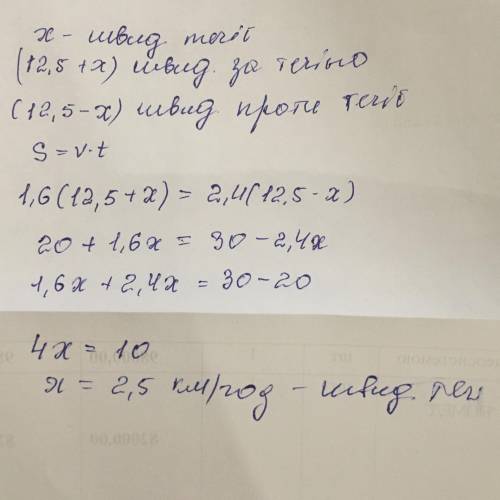 x - швид течії
(12,5 + x) швид. за течією
(12,5 - x) швид проти течії
S = v·t
1,6(12,5 + x) = 2,4(12,5 - x)
20 + 1,6x = 30 - 2,4x
1,6x + 2,4x = 30 - 20
4x = 10
x = 2,5 км/год - швид. теч